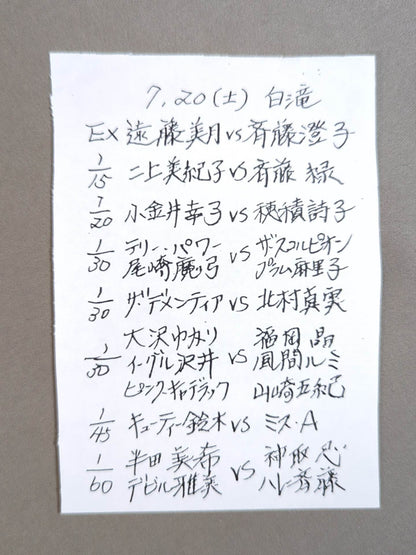 7.20(土) 白滝
EX 遠藤美月 vs 斉藤澄子
1/15 二上美紀子 vs 斉藤 緑
1/20 小金井幸子 vs 穂積詩子
1/30 テリー・パワー 尾崎魔弓 vs ザ・スコルピオン プラム麻里子
1/30 ザ・デメンティア vs 北村真実
1/30 大沢ゆかり イーグル沢井 ピンク・キャデラック vs 福岡 晶 風間ルミ 山崎五紀
1/45 キューティー鈴木 vs ミス・A
1/60 半田美希 デビル雅美 vs 神取 忍 ハーレー斉藤